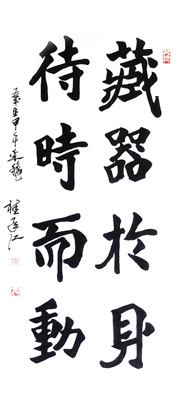 藏器於身
待時而動